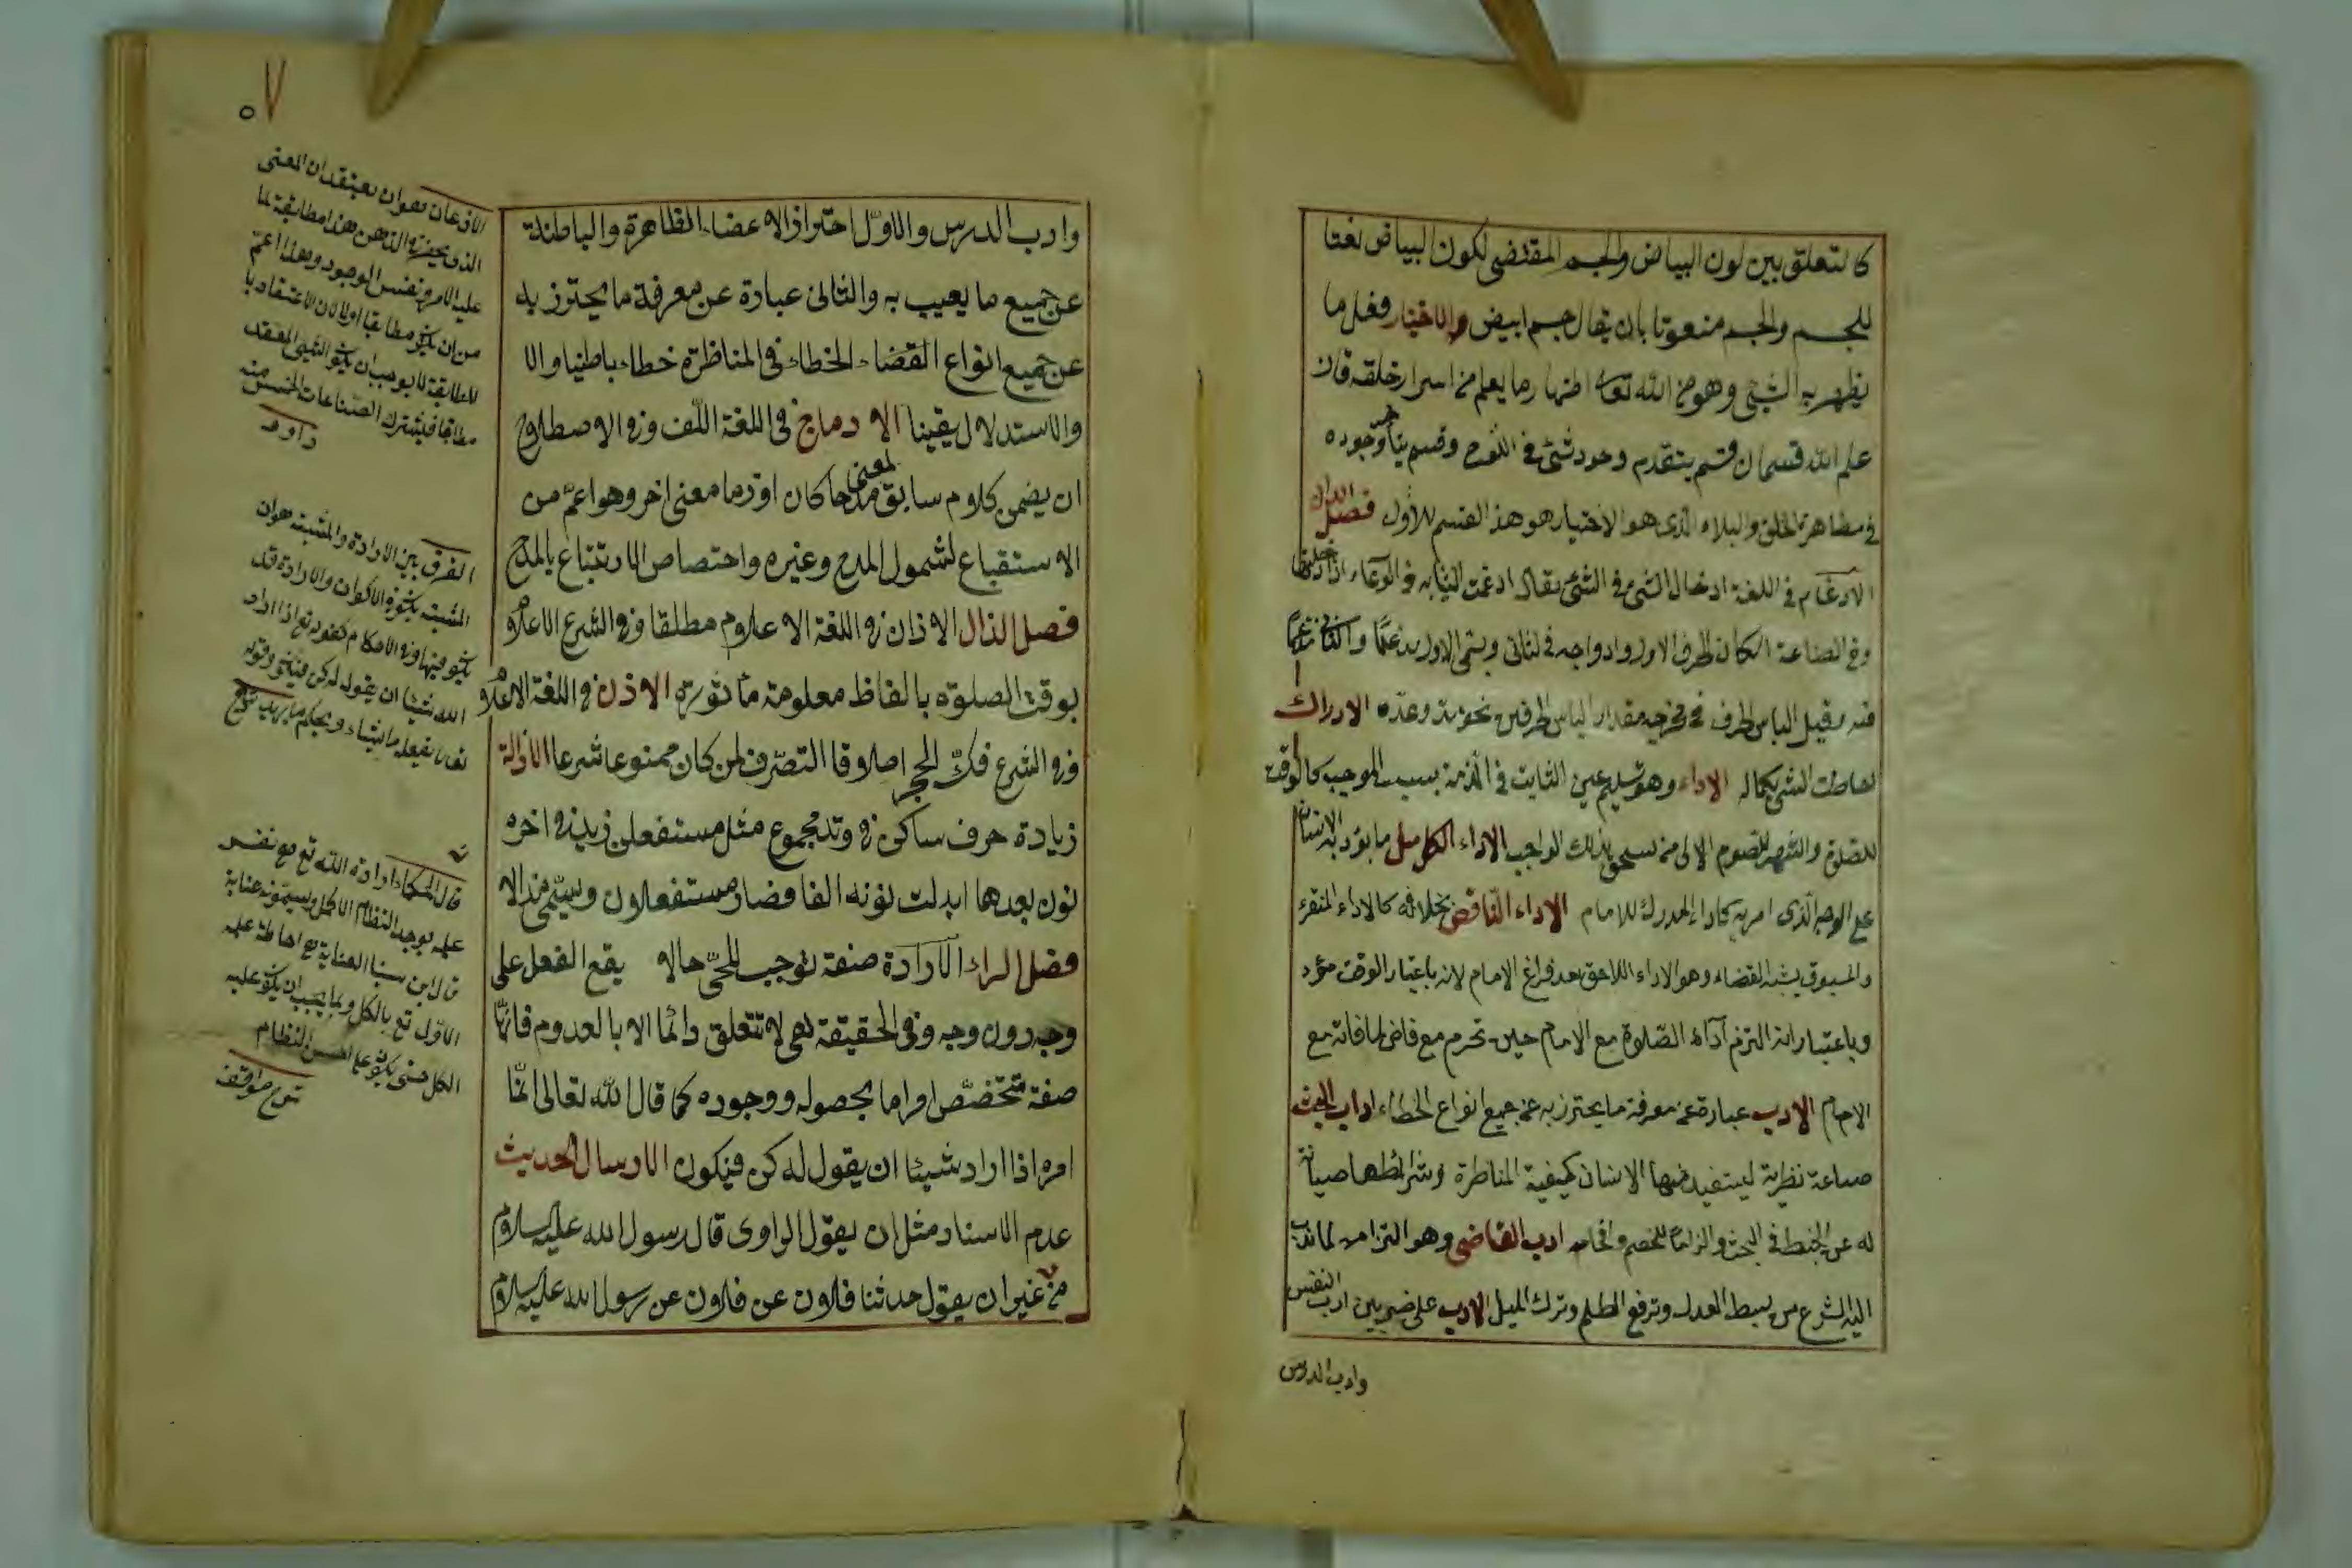 كالتعلق بين لون البياض والجسم المقتضى لكون البياض نعتا
للجسم والجسم منعوتا بان يقال جسم ابيض والاختيار فعل ما
يظهر به الشيئ وهو من الله تعالى اظهار ما يعلم من اسرار خلقه فان
علم الله قسمان قسم يتقدم وجود شئ في اللوح وقسم يتأخر وجوده
في مظاهر الخلق والبلاء الذى هو الاختبار هو هذا القسم لا الأول فصل الدال
الادغام في اللغة ادخال الشئ في الشئ يقال ادغمت الثياب في الوعاء اذا ادخلتها
وفي الصناعة اسكان الحرف الاول وادراجه في الثاني ويسمى الاول مدغما والثاني مدغما
فيه وقيل الباس الحرف في مخرجه مقدار الباس الحرفين نحو مد وعد الادراك
احاطة الشئ بكماله الاداء وهو تسليم عين الثابت في الذمة بسبب الموجب كالوقت
للصلوة والشهر للصوم الى من يستحق ذلك الواجب الاداء الكامل ما يؤديه الانسان
على الوجه الذى امر به كاداء المدرك للامام الاداء الناقص بخلافه كالاداء المنفرد
والمسبوق يشبه القضاء وهو الاداء اللاحق بعد فراغ الامام لانه باعتبار الوقت مؤد
وباعتبار انه التزم آداء الصلوة مع الامام حين تحرم مع قاض لما فاته مع
الامام الادب عبارة عن معرفة ما يحترز به عن جميع انواع الخطاء اداب البحث
صناعة نظرية يستفيد منها الانسان كيفية المناظرة وشرائطها صيانة
له عن الخبط في البحث والزاما للخصم وافحامه ادب القاضى وهو التزامه لما ندب
اليه الشرع من بسط العدل وترفع الظلم وترك الميل الادب على ضربين ادب النفس
وادب الدرس
وادب الدرس والاول احتراز الاعضاء الظاهرة والباطنة
عن جميع ما يعيب به والثانى عبارة عن معرفة ما يحترز به
عن جميع انواع القضاء الخطاء في المناظرة خطاء باطنيا والا
والاستدلال يقينا الادماج في اللغة اللف وفي الاصطلاح
ان يضمن كلام سابق لمعنى مدحا كان او ذما معنى اخر وهو اعم من
الاستتباع لشمول المدح وغيره واختصاص الاستتباع بالمدح
فصل الذال الاذان في اللغة الاعلام مطلقا وفي الشرع الاعلام
بوقت الصلوة بالفاظ معلومة مأثورة الاذن في اللغة الاعلام
وفي الشرع فك الحجر اطلاق التصرف لمن كان ممنوعا شرعا الاذالة
زيادة حرف ساكن في وتد مجموع مثل مستفعلن زيد في اخره
نون بعدها ابدلت نونه الفا فصار مستفعلان ويسمى مذالا
فصل الراء الارادة صفة توجب للحى حالا يقع الفعل على
وجه دون وجه وفي الحقيقة هى لا تتعلق دائما الا بالعدوم فانها
صفة تخصص امرا ما بحصوله ووجوده كما قال الله تعالى انما
امره اذا اراد شيئا ان يقول له كن فيكون الارسال الحديث
عدم الاسناد مثل ان يقول الراوى قال رسول الله عليه السلام
من غير ان يقول حدثنا فلان عن فلان عن رسول الله عليه السلام
الاذعان هو ان يعتقد ان المعنى
الفرق بين الارادة والمشيئة هو ان
المشيئة يكون في الاكوان والارادة قد
يكون فيها وفي الاحكام كقوله تع اذا اراد
الله شيئا ان يقول له كن فيكون وقوله
يفعل ما يشاء ويحكم ما يريد
قال الحكماء ارادة الله تع هو نفس
علمه بوجه النظام الاكمل ويسمونه عناية
قال ابن سينا العناية هي احاطة علم
الاول تع بالكل وبما يجب ان يكون عليه
الكل حتى يكون على احسن النظام